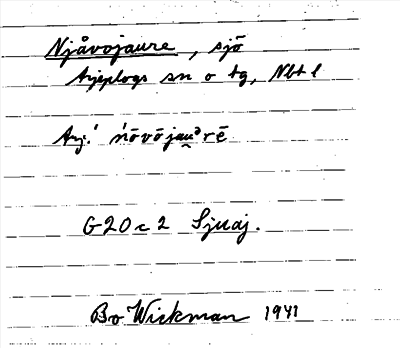 Njåvojaure, sjö
Arjeplogs sn o tg, Nbt l
Arj.! ńōvōjau̯ᵊrē
G20c2 Sjuaj.
Bo Wickman 1941